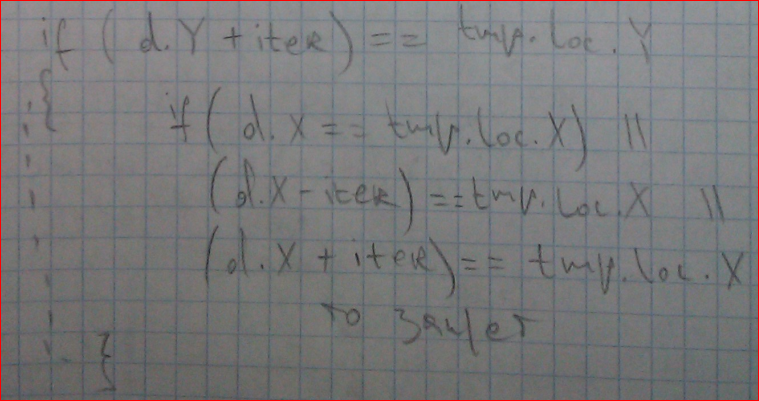 if (d.Y + iter) == tmp.loc.Y
{
if (d.X == tmp.loc.X) ||
(d.X - iter) == tmp.loc.X ||
(d.X + iter) == tmp.loc.X
то
}